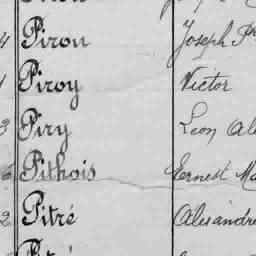 4 Pirou Joseph
1 Piroy Victor
3 Piry Leon
6 Pithois Ernest
2 Pitré Alexandre